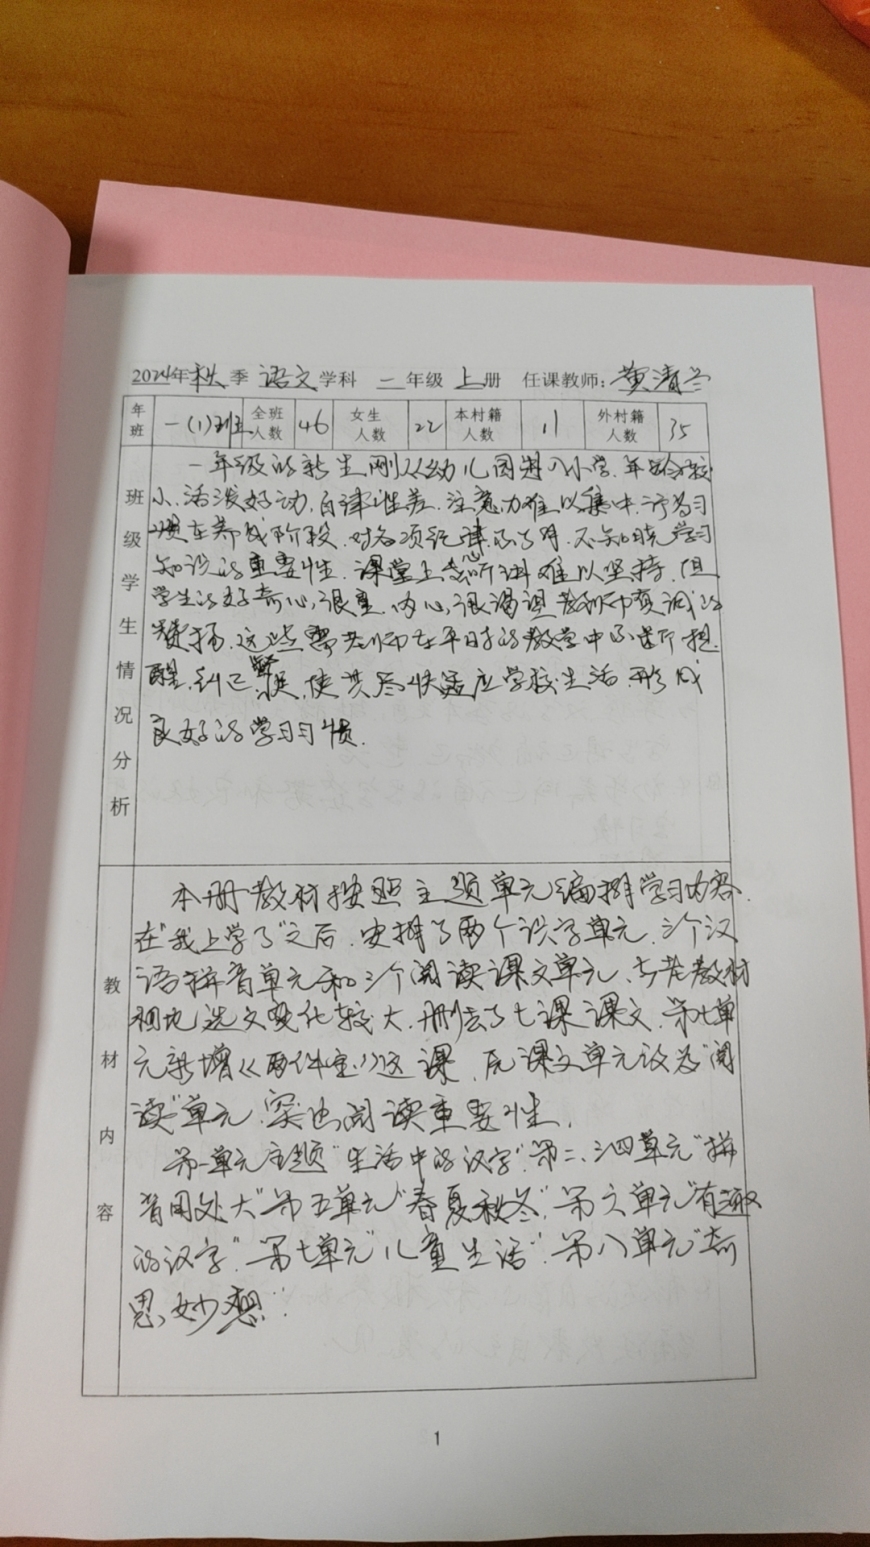 2024年秋季 语文学科 一年级 上册 任课教师：黄清兰
年班 一(1)班 全班人数 46 女生人数 22 本村籍人数 11 外村籍人数 35
班级学生情况分析
一年级的新生刚从幼儿园进入小学，年龄较
小，活泼好动，自律性差，注意力难以集中，行为习
惯在养成阶段，对各项纪律不了解，不知晓学习
知识的重要性，课堂上专心听讲难以坚持，但
学生的好奇心很重，内心很渴望教师赞扬的
赞扬，这些需老师在平日的教学中不断提
醒，纠正，使其尽快适应学校生活，形成
良好的学习习惯。
教材内容
本册教材按照主题单元编排学习内容，
在“我上学了”之后，安排了两个识字单元，三个汉
语拼音单元和三个阅读课文单元，与老教材
相比选文变化较大，删去了七课课文，第七单
元新增《两件宝》这课，原课文单元改为“阅
读”单元，突出阅读重要性，
第一单元主题“生活中的汉字”，第二、三四单元“拼
音用处大”第五单元“春夏秋冬”，第六单元“有趣
的汉字”，第七单元“儿童生活”，第八单元“奇
思妙想”。
1